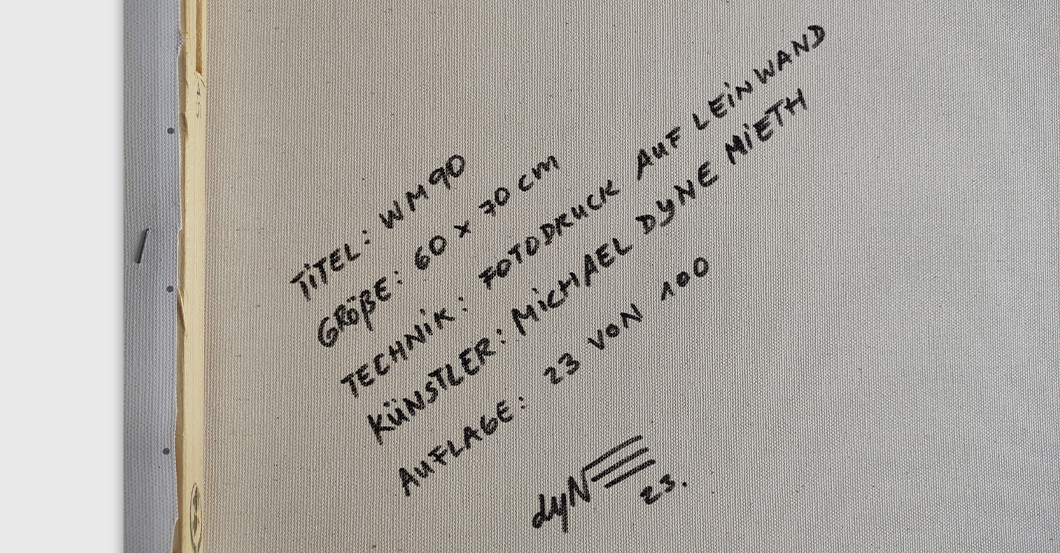 TiTEL: WM90
GRÖßE: 60 x 70 cm
TECHNiK: FOTODRUCK AUF LEiNWAND
KÜNSTLER: MiCHAEL DYNE MiETH
AUFLAGE: 23 VON 100
dyN
23.